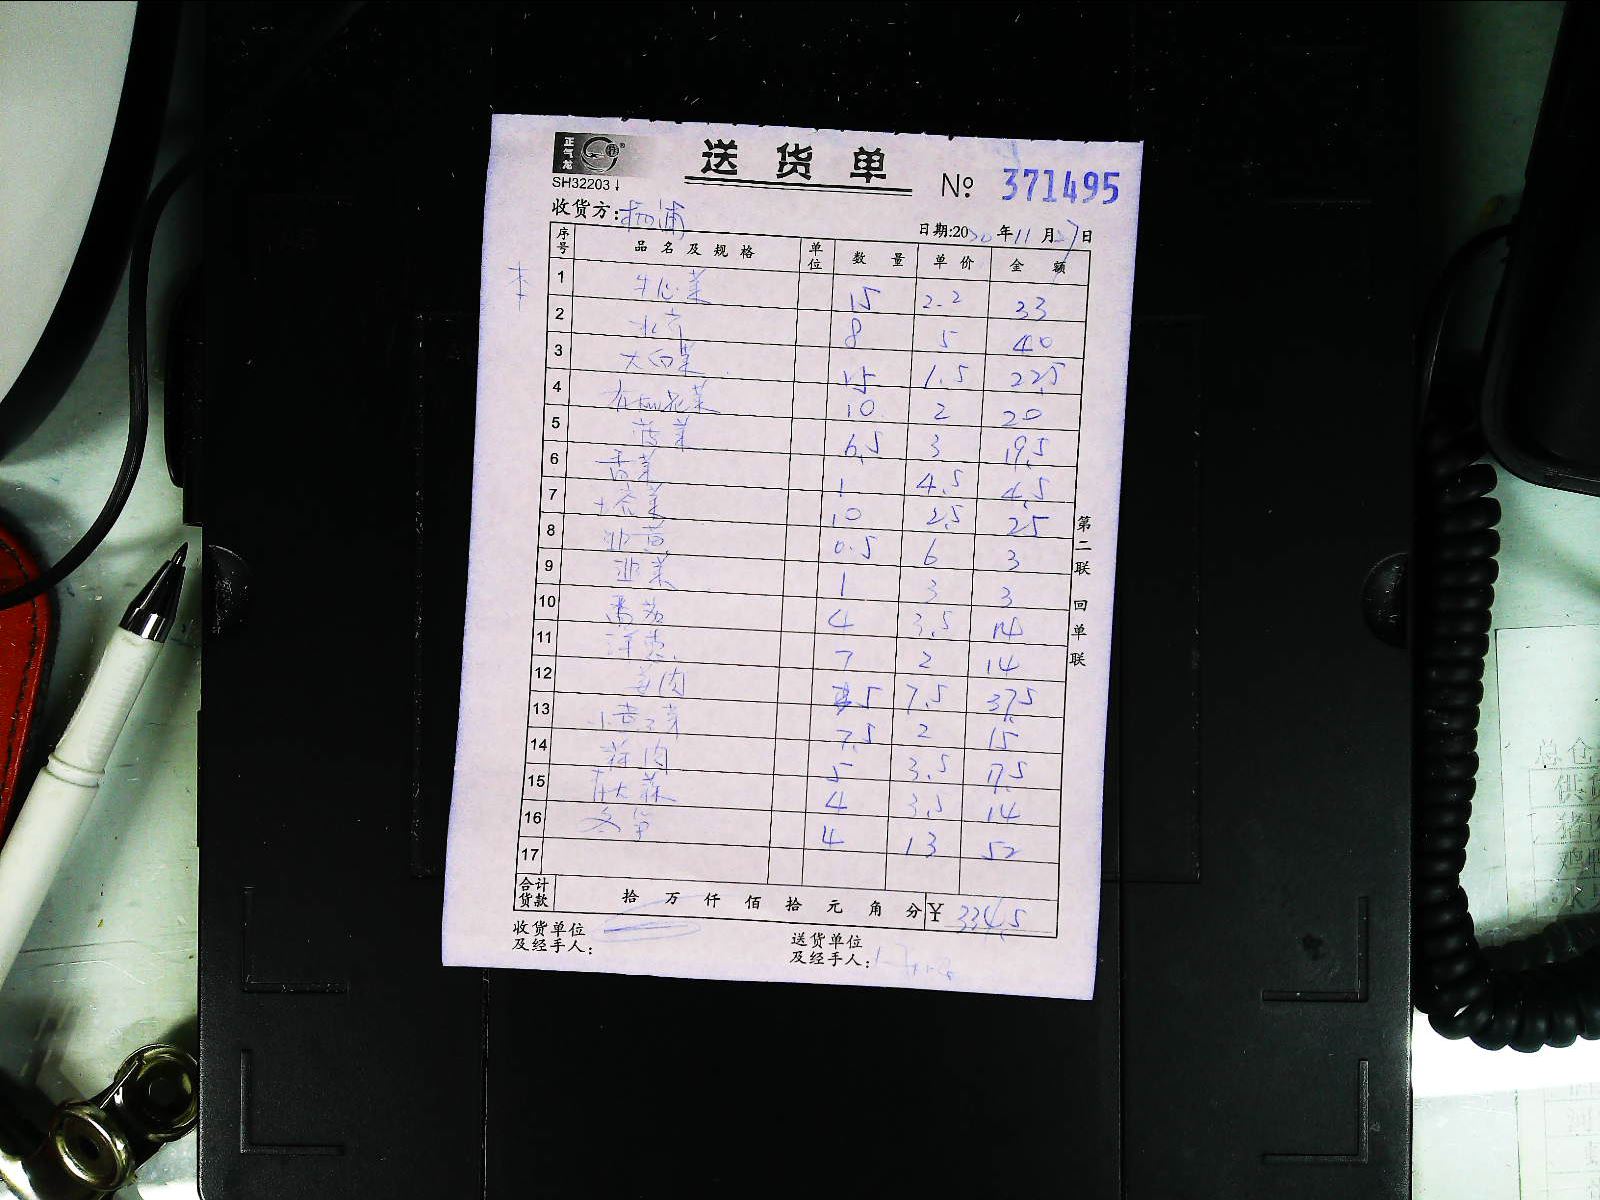 正气龙
送货单
SH32203
No 371495
收货方: 杨浦
日期:2020年11月27日
序号 品名及规格 单位 数量 单价 金额
1 牛心菜 15 2.2 33
2 8 5 40
3 大白菜 15 1.5 22.5
4 有机花菜 10 2 20
5 菠菜 6.5 3 19.5
6 香菜 1 4.5 4.5
7 10 2.5 25
8 韭黄 0.5 6 3
9 韭菜 1 3 3
10 番茄 4 3.5 14
11 洋葱 7 2 14
12 姜肉 5 7.5 37.5
13 7.5 2 15
14 蒜肉 5 3.5 17.5
15 青大蒜 4 3.5 14
16 冬笋 4 13 52
17
合计货款 拾 万 仟 佰 拾 元 角 分 ¥ 334.5
收货单位及经手人:
送货单位及经手人:
第二联 回单联
总仓
供货